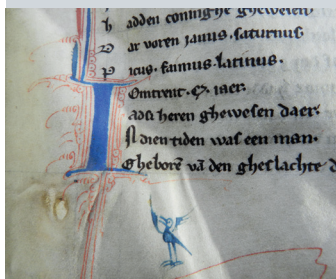 h adden coninghe ghewesen
D ar voren janus. saturnus
P icus. faunus. latinus.
Omtrent. C. iaer.
adē heren ghewesen daer.
In dien tiden was een man.
Gheborē vā den gheslachte